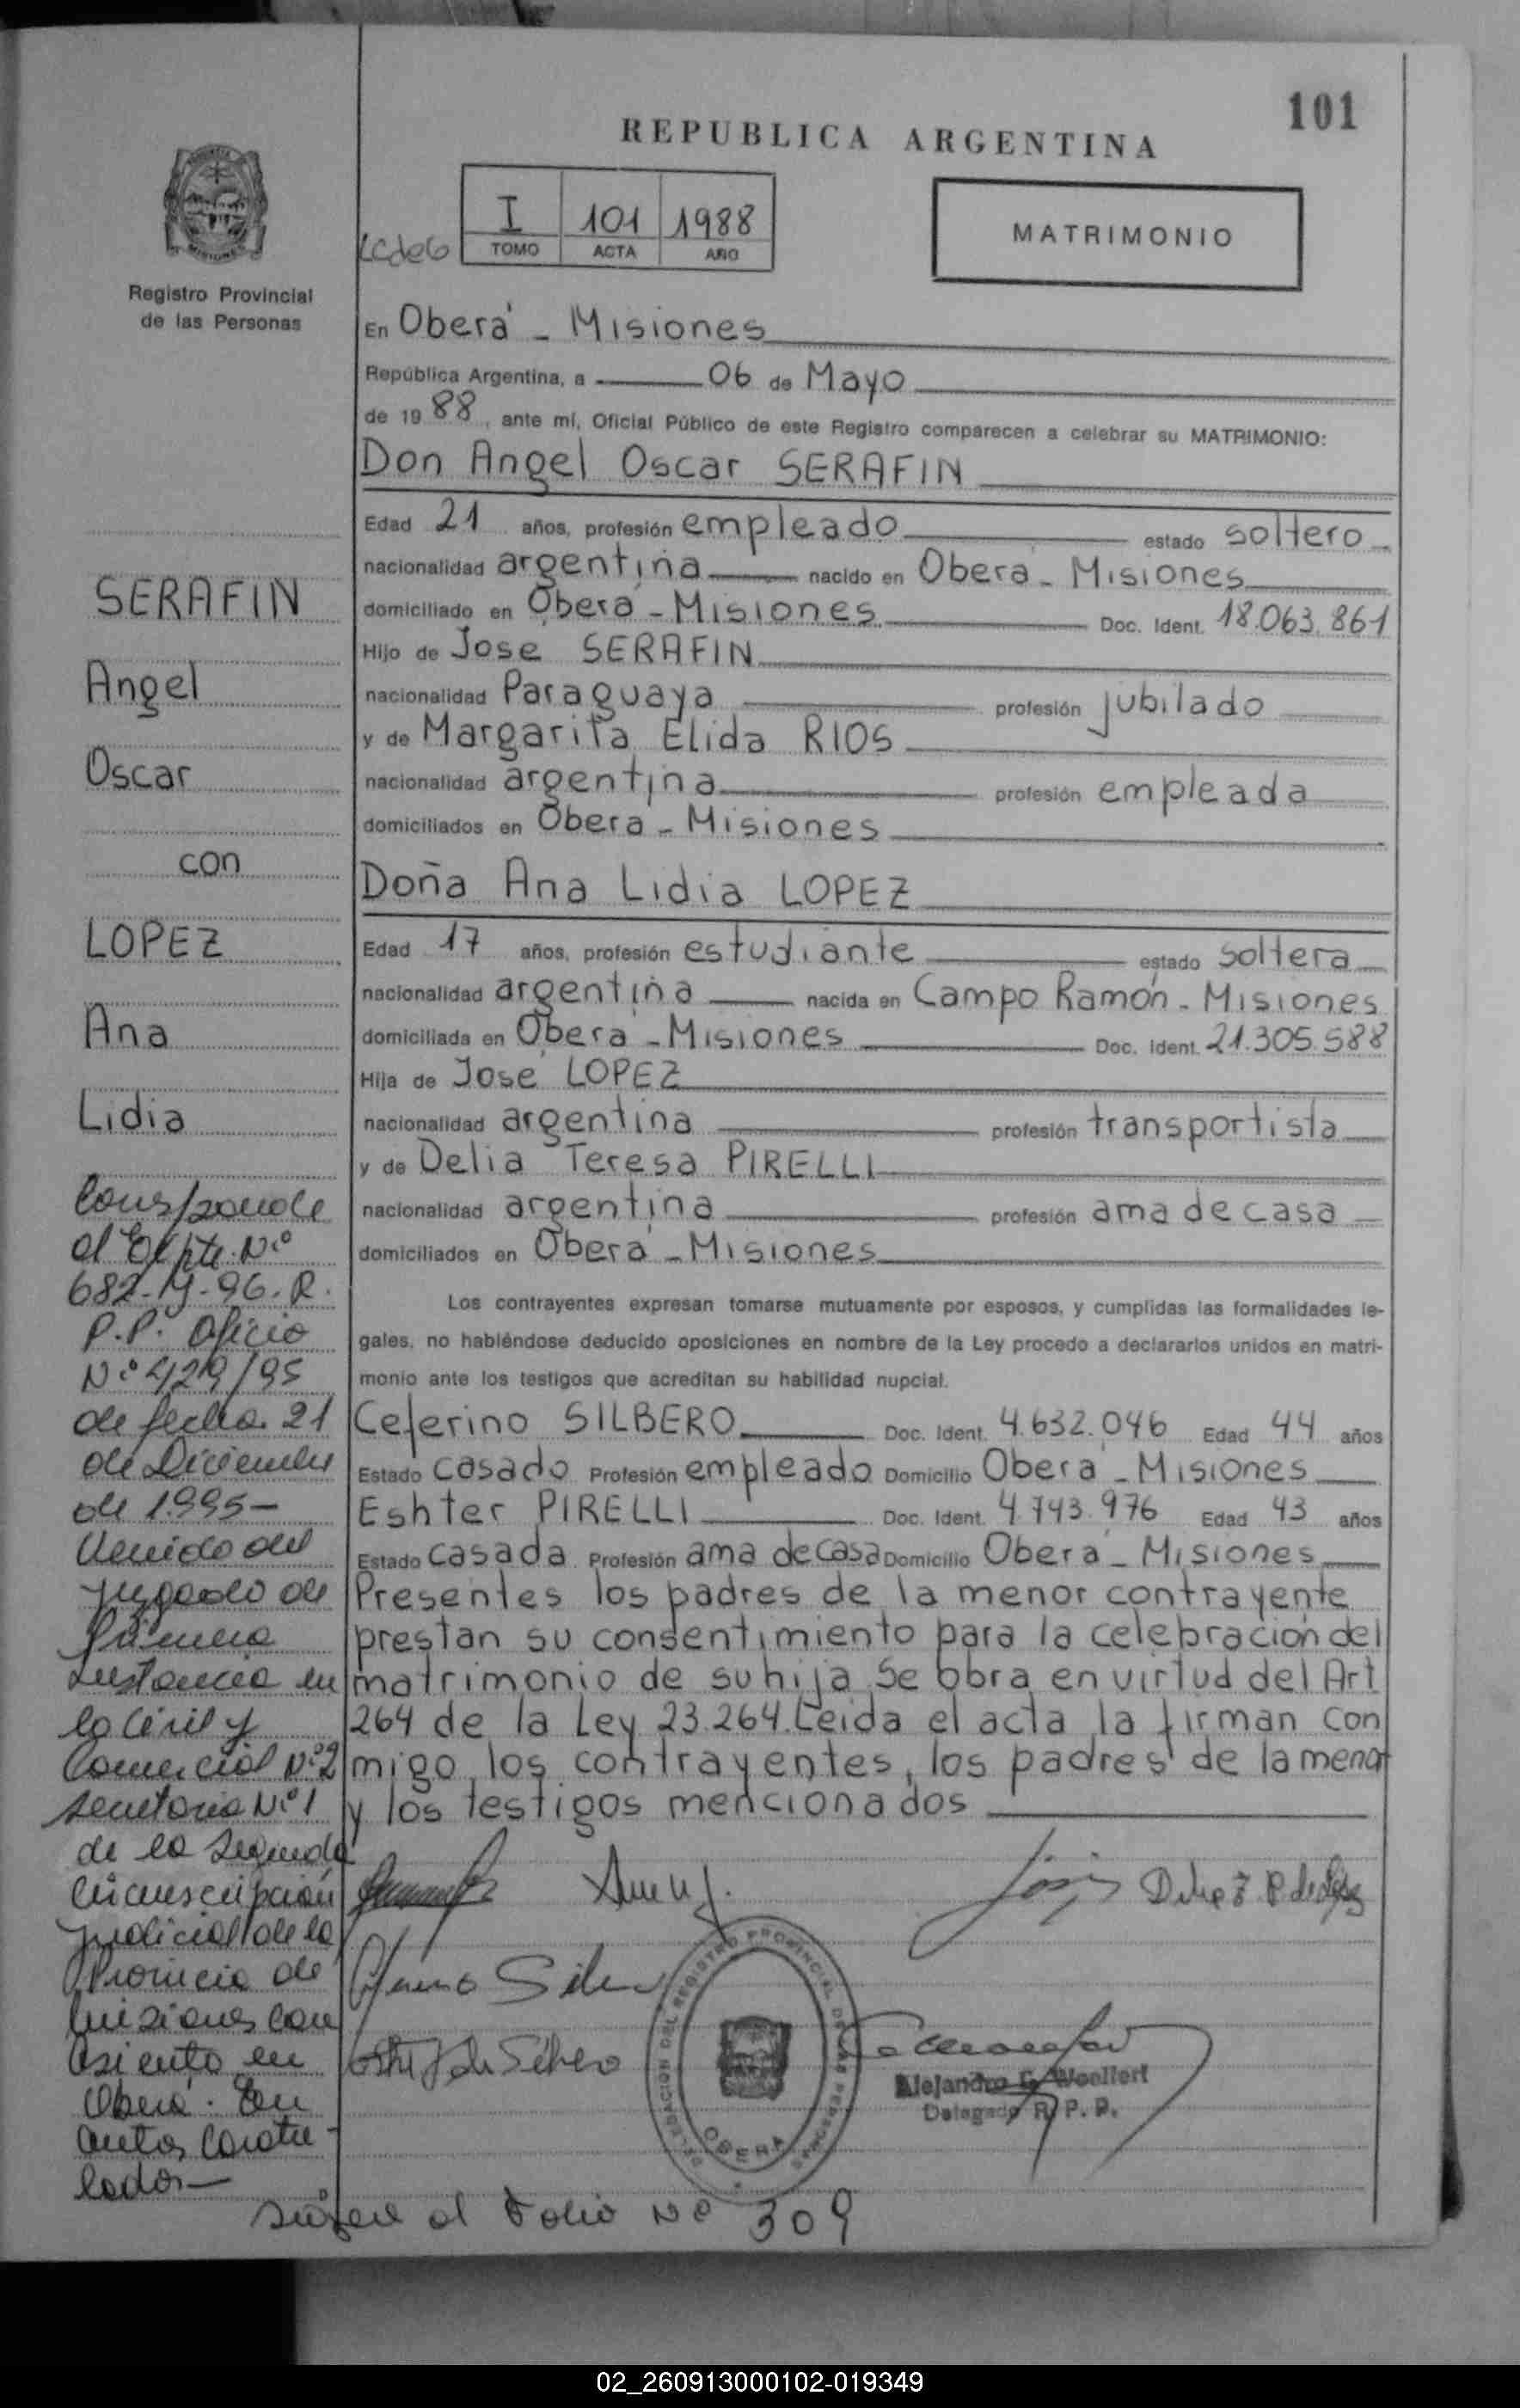 101
REPUBLICA ARGENTINA
I 101 1988
TOMO ACTA AÑO
MATRIMONIO
MISIONES
Registro Provincial
de las Personas
En Oberá - Misiones
República Argentina, a 06 de Mayo
de 1988, ante mí, Oficial Público de este Registro comparecen a celebrar su MATRIMONIO:
Don Angel Oscar SERAFIN
Edad 21 años, profesión empleado estado soltero
nacionalidad argentina nacido en Oberá - Misiones
domiciliado en Oberá - Misiones Doc. Ident. 18.063.861
Hijo de José SERAFIN
nacionalidad Paraguaya profesión jubilado
y de Margarita Elida RIOS
nacionalidad argentina profesión empleada
domiciliados en Oberá - Misiones
Doña Ana Lidia LOPEZ
Edad 17 años, profesión estudiante estado soltera
nacionalidad argentina nacida en Campo Ramón - Misiones
domiciliada en Oberá - Misiones Doc. Ident. 21.305.588
Hija de José LOPEZ
nacionalidad argentina profesión transportista
y de Delia Teresa PIRELLI
nacionalidad argentina profesión ama de casa
domiciliados en Oberá - Misiones
Los contrayentes expresan tomarse mutuamente por esposos, y cumplidas las formalidades le-
gales, no habiéndose deducido oposiciones en nombre de la Ley procedo a declararlos unidos en matri-
monio ante los testigos que acreditan su habilidad nupcial.
Ceferino SILBERO Doc. Ident. 4.632.046 Edad 44 años
Estado casado Profesión empleado Domicilio Oberá - Misiones
Eshter PIRELLI Doc. Ident. 4.743.976 Edad 43 años
Estado casada Profesión ama de casa Domicilio Oberá - Misiones
Presentes los padres de la menor contrayente
prestan su consentimiento para la celebración del
matrimonio de su hija. Se obra en virtud del Art
264 de la Ley 23.264. Leida el acta la firman con
migo, los contrayentes, los padres de la menor
y los testigos mencionados
SERAFIN
Angel
Oscar
con
LOPEZ
Ana
Lidia
Corresponde
al Expte. Nº
682-M-96. R.
P.P. Oficio
Nº 429/95
de fecha 21
de Diciembre
de 1.995-
Venido del
Juzgado de
Primera
Instancia en
lo Civil y
Comercial Nº2
Secretaria Nº1
de la Segunda
Circunscripción
judicial de la
Provincia de
Misiones con
asiento en
Oberá. En
autos caratu-
lados-
DELEGACION DEL REGISTRO PROVINCIAL DE LAS PERSONAS
OBERA
Alejandro G. Woellert
Delegado R. P. P.
Sigue al Folio Nº 309
02_260913000102-019349